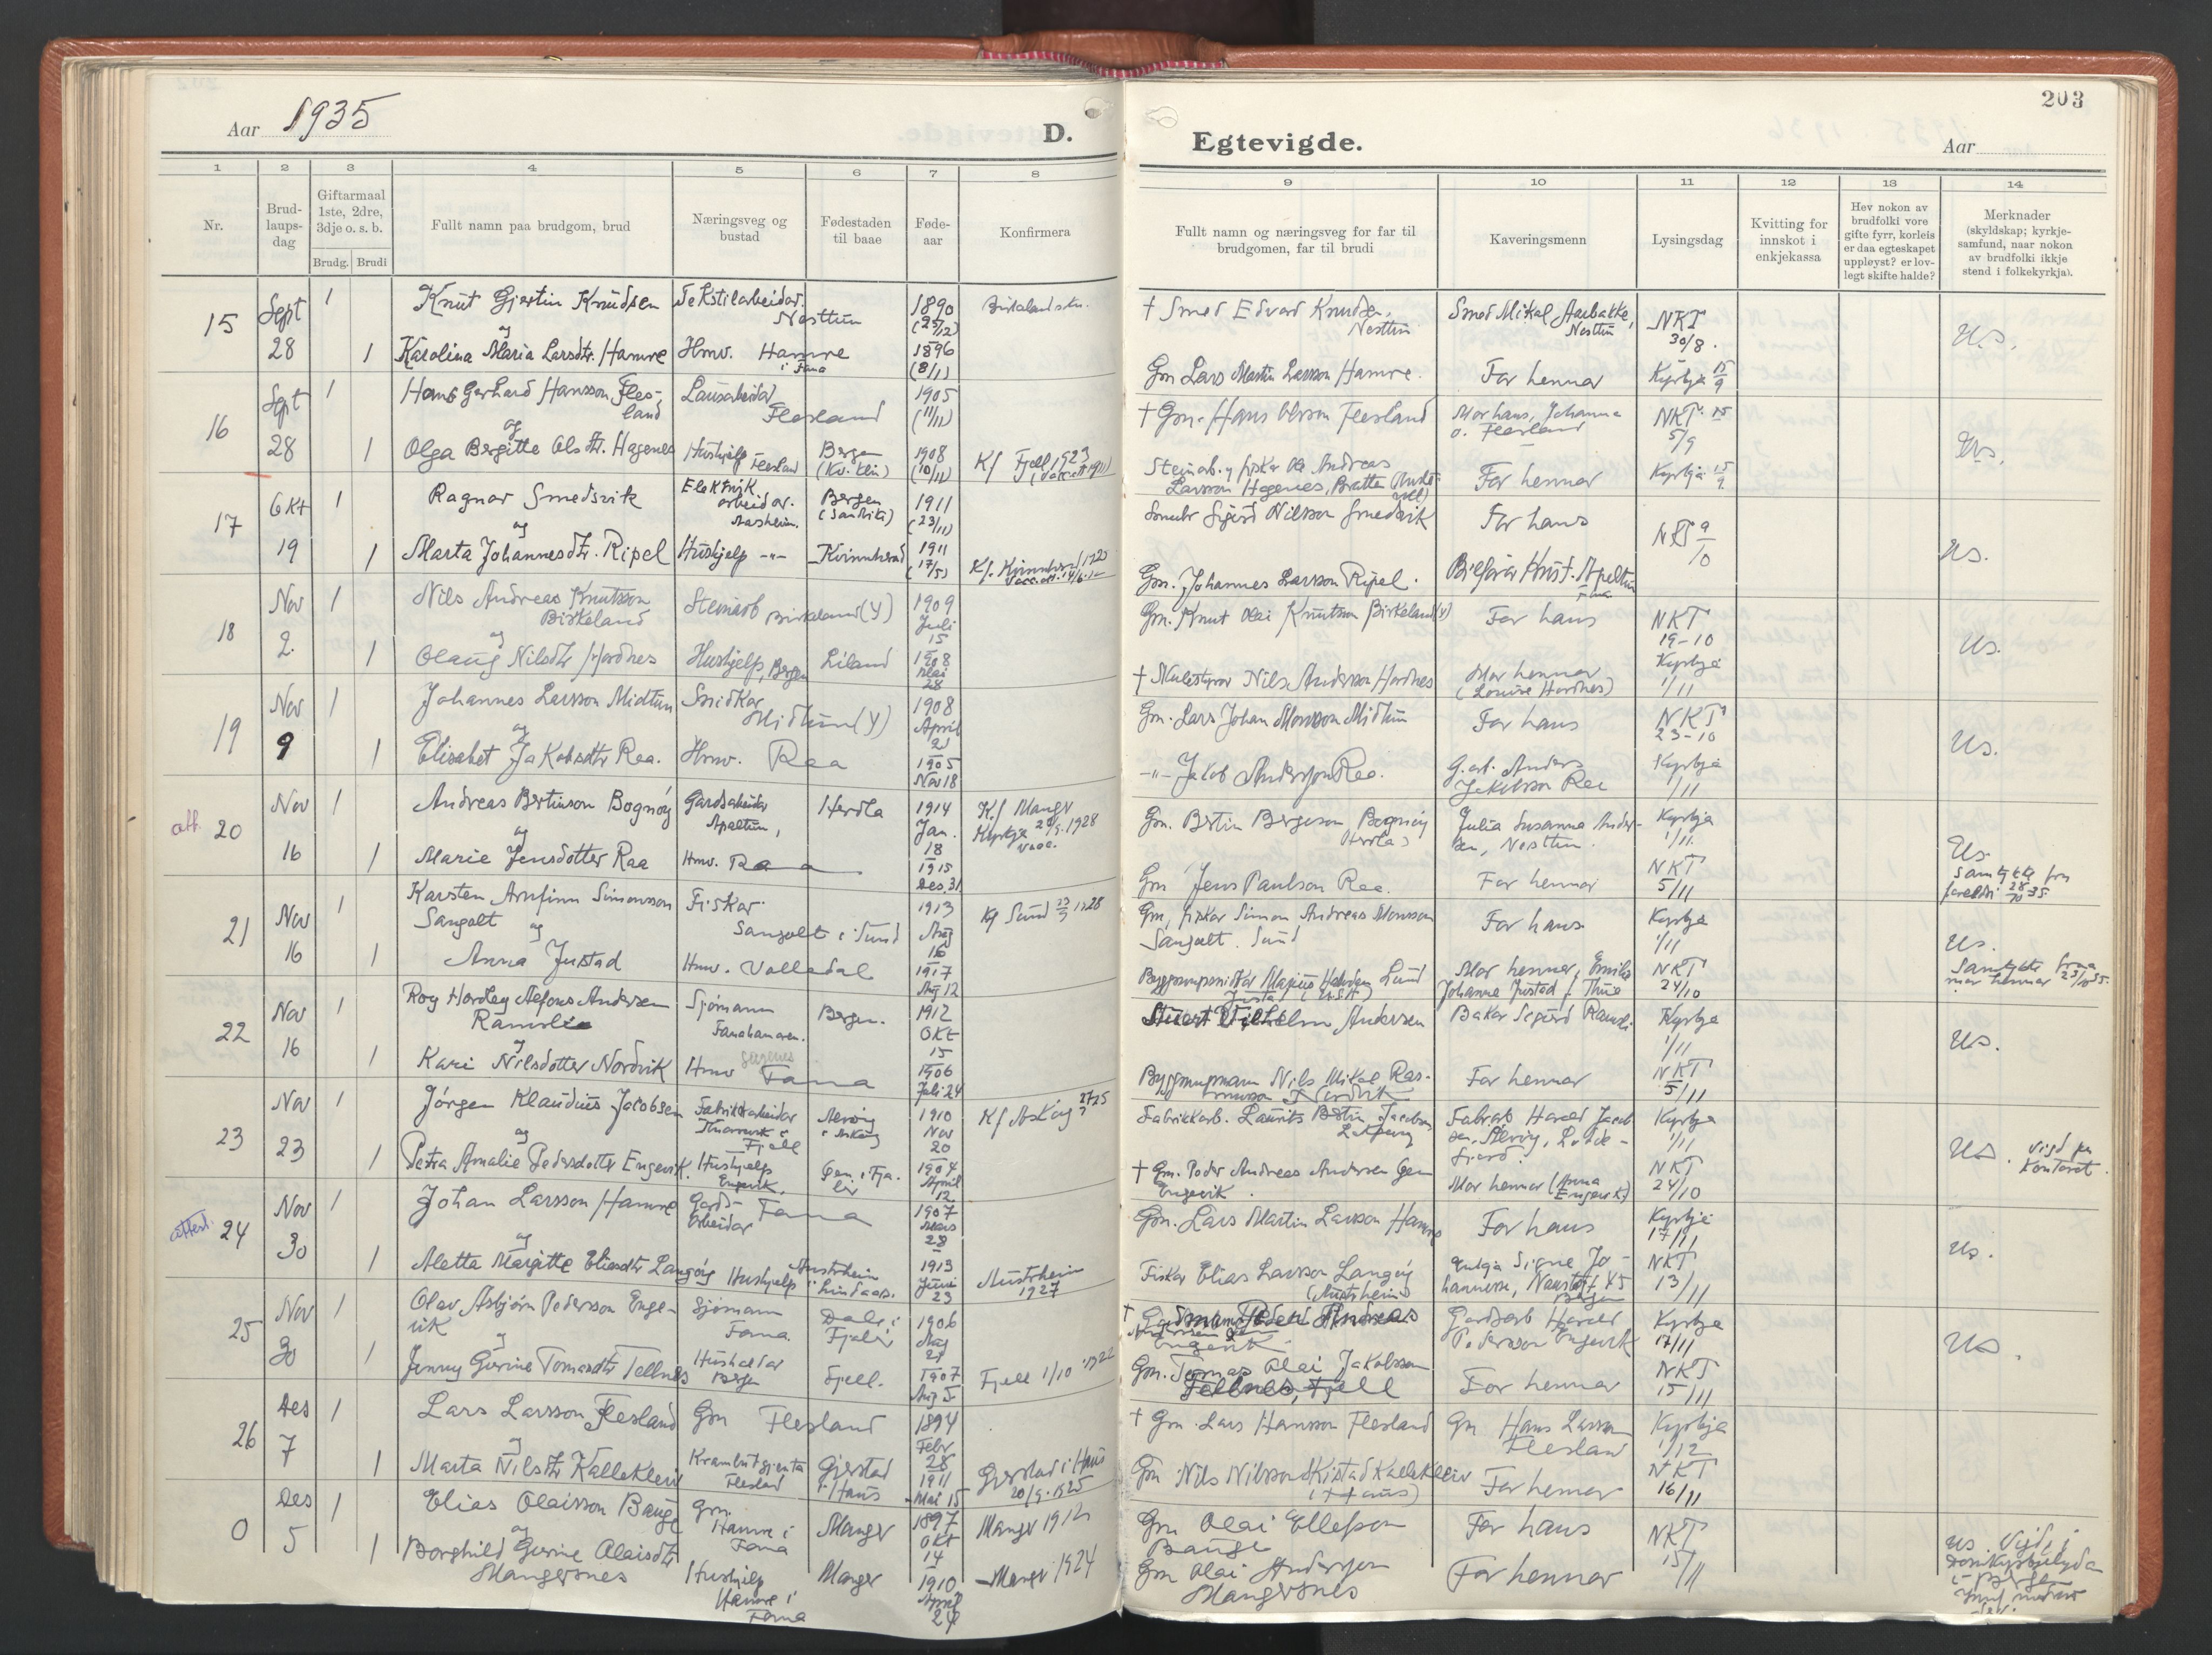 Aar 1935
D.
1 2 3 4 5 6 7 8
Nr.
Brud-
laups-
dag
Giftarmaal
1ste, 2dre,
3dje o. s. b.
Brudg. Brudi
Fullt namn paa brudgom, brud
Næringsveg og
bustad
Fødestaden
til baae
Føde-
aar
Konfirmera
15 Sept 28
1 Knut Gjertin Knudsen
og
1 Karolina Maria Larsdtr. Hamre
Tekstilarbeidar.
Nesttun
Hmv. Hamre
i Fana
1890
(25/12)
1896
(8/1)
16 Sept 28
1 Hans Gerhard Hansson Fles-
land
og
1 Olga Bergitte Olsdtr. Hagenes
Lausarbeidar
Flesland
Hushjelp Flesland
Bergen
(Kv. klin)
1905
(11/11)
1908
(10/11)
Kf Fjell 1923
17 Okt 19
1 Ragnar Smedsvik
og
1 Marta Johannesdtr. Ripel
Elektrik.
arbeidar.
Hushjelp -"-
Bergen
Kvinnherad
1911
(23/11)
1911
(17/5)
Kf. Kvinnherad
18 Nov 2.
1 Nils Andreas Knutson
Birkeland
og
1 Olaug Nilsdtr Hordnes
Steinarb Birkeland (Y)
Hushjelp, Bergen
Liland
1909
Juli
15
1908
Mai
28
19 Nov 9
1 Johannes Larsson Midtun
og
1 Elisabet Jakobsdtr Raa.
Snidkar
Midtun (Y)
Hmv. Raa
1908
April
21
1905
Nov 18
att. 20 Nov 16
1 Andreas Bertinson Bognøy
og
1 Marie Jensdotter Raa
Gardsarbeidar
Apeltun,
Hmv. Raa
Herdla
1914
Jan.
18
1915
Des. 31
Kf Manger
Kyrkja 1928
vacc.
21 Nov 16
1 Karsten Arnfinn Simonsson
Sangolt
og
1 Anna Justad
Fiskar
Sangolt i Sund
Hmv. Valledal
1913
Aug
16
1917
Aug 12
Kf Sund 1928
22 Nov 16
1 Roy Hordley Alfons Andersen
Ramsli
og
1 Kari Nilsdotter Nordvik
Sjømann
Fanahamaren.
Hmv Fana
Bergen.
1912
Okt
15
1906
Juli 24
23 Nov 23
1 Jørgen Klaudius Jacobsen
og
1 Petra Amalie Pedersdotter Engevik.
Fabrikkarbeidar
Fjell
Hushjelp
Engevik,
i Askøy
1910
Nov
20
1904
April
12
Kf Askøy
attest. 24 Nov 30
1 Johan Larsson Hamre
og
1 Aletta Margitte Eliasdtr Langøy
Gards-
arbeidar
Fana
Hushjelp
Austrheim
i Lindaas.
1907
Mars
28
1913
Juni
23
Austrheim
1927
25 Nov 30
1 Olav Asbjørn Pedersson Enge-
vik
og
1 Jenny Gurine Tomasdtr Tellnes
Sjømann
Fana.
Hushaldar
Bergen
Dale i
Fjaler
Fjell.
1906
Aug
21
1907
Aug 5
Fjell 1/10 1922
26 Des 7
1 Lars Larsson Flesland
og
1 Marta Nilsdtr Kallekleiv
Gm Flesland
Krambutgjenta
Flesland
Gjerstad
i Haus
1894
Febr
28
1911
Mai 15
Gjerstad i Haus
20/9 1925
0 Des 5
1 Elias Olaisson Bauge
og
1 Borghild Gurine Olaisdtr
Mangersnes
Gm.
Hamre i
Fana
Hushjelp
Hamre i
Fana
Manger
Manger
1897
Okt
14
1910
April
24
Manger 1912
Manger 1924
203
Egtevigde.
Aar
9 10 11 12 13 14
Fullt namn og næringsveg for far til
brudgomen, far til brudi
Kaveringsmenn
Lysingsdag
Kvitting for
innskot i
enkjekassa
Hev nokon av
brudfolki vore
gifte fyrr, korleis
er daa egteskapet
uppløyst? er lov-
legt skifte halde?
Merknader
(skyldskap; kyrkje-
samfund, naar nokon
av brudfolki ikkje
stend i folkekyrkja).
† Smed Edvard Knudsen,
Nesttun
Smed Mikal Aarbakke,
Nesttun
NKT
30/8.
Us.
Gm Lars Martin Larsson Hamre.
Far hennar
Kyrkja 15/9
† Gm. Hans Olsson Flesland
Mor hans, Johanna
O. Flesland
NKT
5/9
Us.
Steinarb. og fiskar Ole Andreas
Larsson Hagenes, Bratten
Far hennar
Kyrkja 15/9
Sigurd Nilsson Smedsvik
Far hans
NKT 9/10
Us.
Gm. Johannes Larsson Ripel.
Bileigar Apeltun
Fana
Gm. Knut Olai Knutson Birkeland (Y)
Far hans
NKT
19-10
Us.
† Skulestyrar Nils Andersson Hordnes
Mor hennar
(Louise Hordnes)
Kyrkja
1/11
Gm. Lars Johan Monsson Midtun
Far hans
NKT
23-10
Us.
-"- Jakob Andersson Raa.
G.arb. Anders
Jakobson Raa
Kyrkja
1/11
Gm. Bertin Bergeson Bognøy
(Herdla)
Julia Susanna Ander-
sen, Nesttun.
Kyrkja
1/11.
Us.
Samtykke fra
foreldri 28/10 35.
Gm Jens Paulson Raa.
Far hennar
NKT
5/11
Gm, fiskar Simon Andreas Monsson
Sangolt. Sund
Far hans
Kyrkja
1/11
Us.
Samtykke fraa
mor hennar 23/10 35.
Mor hennar, Emilie
Johanna Justad
NKT
24/10
Vilhelm Andersen
Bakar Sigurd Ramsli
Kyrkja
1/11
Us.
Byggmeistar Nils Mikal Ras-
musson Nordvik
Far hennar
NKT
5/11
Fabrikkarb. Laurits Bertin Jacobsen
Fabrarb Harald Jacob
sen,
Kyrkja
1/11
Us. Vigd paa
kontoret.
† Gm. Peder Andreas Andersen Gjøn
Engevik.
Mor hennar (Anna
Engevik)
NKT
24/10
Gm. Lars Martin Larsson Hamre
Far hans
Kyrkja
17/11
Us.
Fiskar Elias Larsson Langøy
(Austrheim)
Enkja Signe Jo-
hannesse, 45
Bergen
NKT
13/11
† Peder Andreas
Engevik
Gardsarb Harald
Pedersson Engevik
Kyrkja
17/11
Us.
Gm. Tomas Olai Jakobsson
Tellnes, Fjell
Far hennar
NKT
15/11
† Gm. Lars Hansson Flesland
Gm Hans Larsson
Flesland
Kyrkja
1/12
Gm Nils Nilsson Kallekleiv
(Haus)
Far hennar
NKT
16/11
Gm Olai Ellefson
Bauge
Far hans
NKT
15/11
Us. Vigde i
Gm Olai Anderssen
Mangersnes
Far hennar
i Bergen